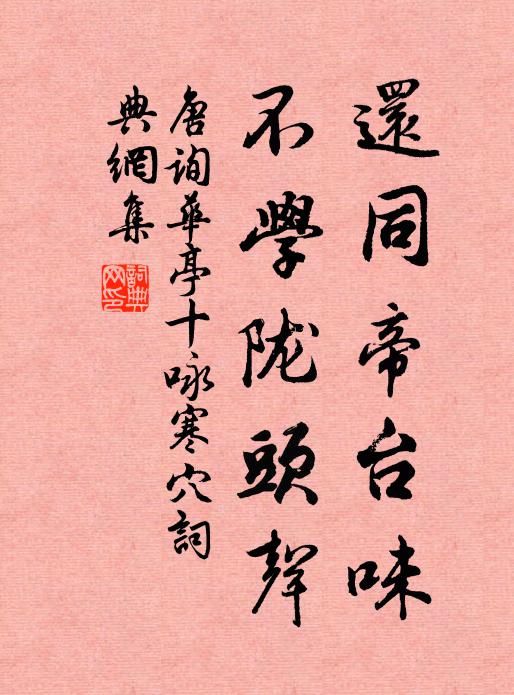 還同帝台味
不學陇頭聲
唐詢華亭十咏寒穴詞
典網集
詞典網印